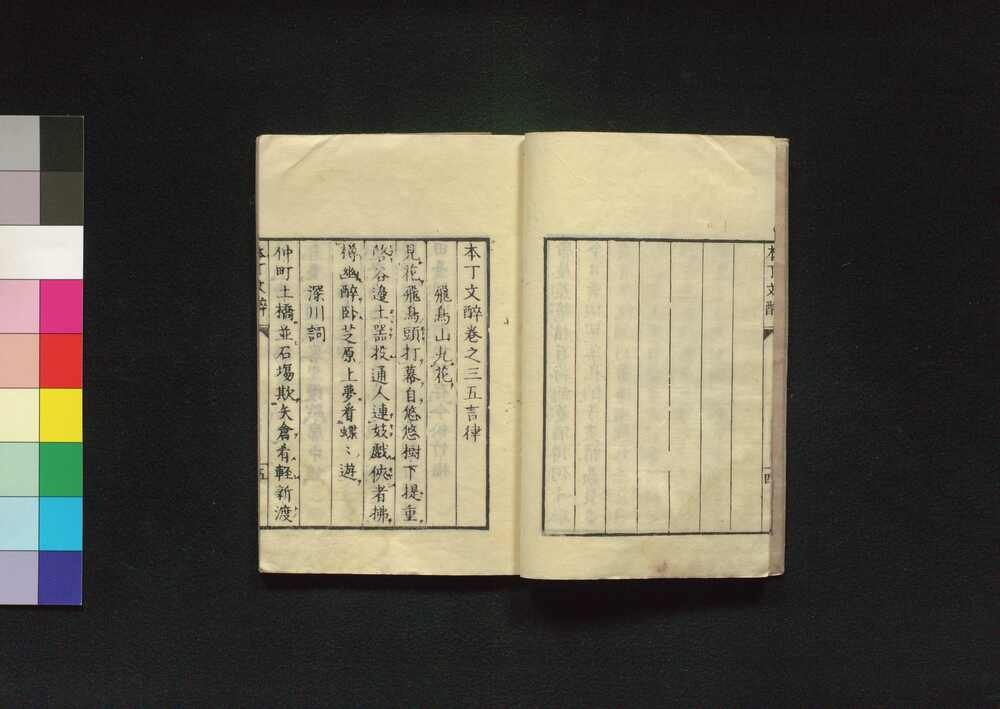 本丁文醉
四
本丁文醉卷之三五言律
飛鳥山九花
見花飛鳥頭打幕自悠悠樹下提重
啓谷邉土器投通人連妓戯俠者拂
樽幽醉卧芝原上夢看蝶〻遊
深川詞
仲町土橋並石塲欺矢倉肴軽新渡
本丁文醉
五